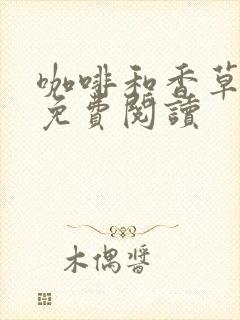 咖啡和香草
免費閱讀
木偶醬